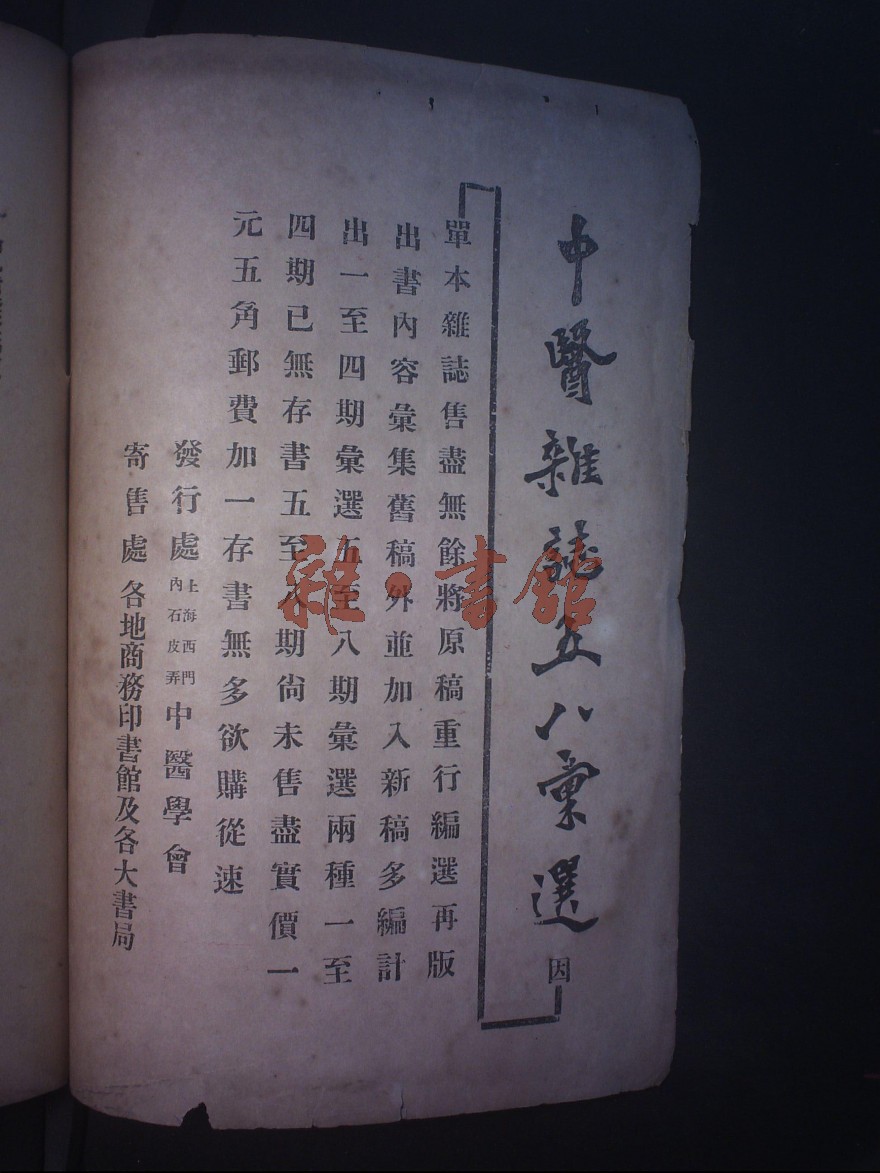 中醫雜誌五八彙選
因
單本雜誌售盡無餘將原稿重行編選再版
出書內容彙集舊稿外並加入新稿多編計
出一至四期彙選五至八期彙選兩種一至
四期已無存書五至八期尙未售盡實價一
元五角郵費加一存書無多欲購從速
發行處上海西門內石皮弄中醫學會
寄售處各地商務印書館及各大書局
雜·書館